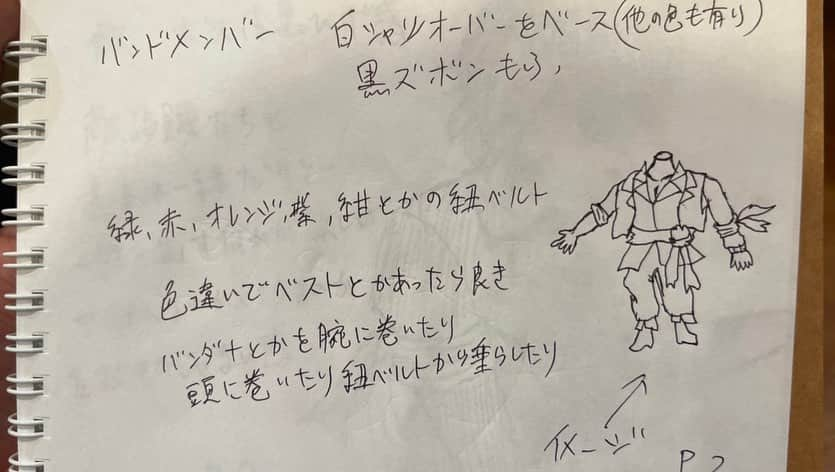 バンドメンバー 白シャツオーバーをベース(他の色も有り)
黒ズボンもろ,
緑、赤、オレンジ、紫、紺とかの紐ベルト
色違いでベストとかあったら良き
バンダナとかを腕に巻いたり
頭に巻いたり紐ベルトから垂らしたり
イメージ
P2